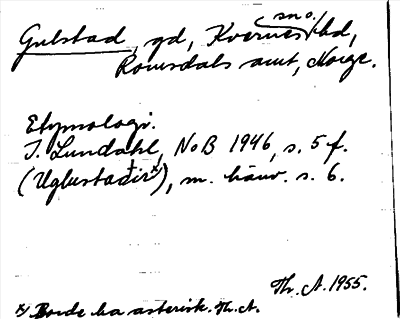 Gulstad, gd, Kvernes sno. / hd,
Romsdals amt, Norge.
Etymologi.
I. Lundahl, NoB 1946, s. 5 f.
(Uglustaðir x)), m. hänv. s. 6.
Th. A. 1955.
x) Borde ha asterisk. Th. A.